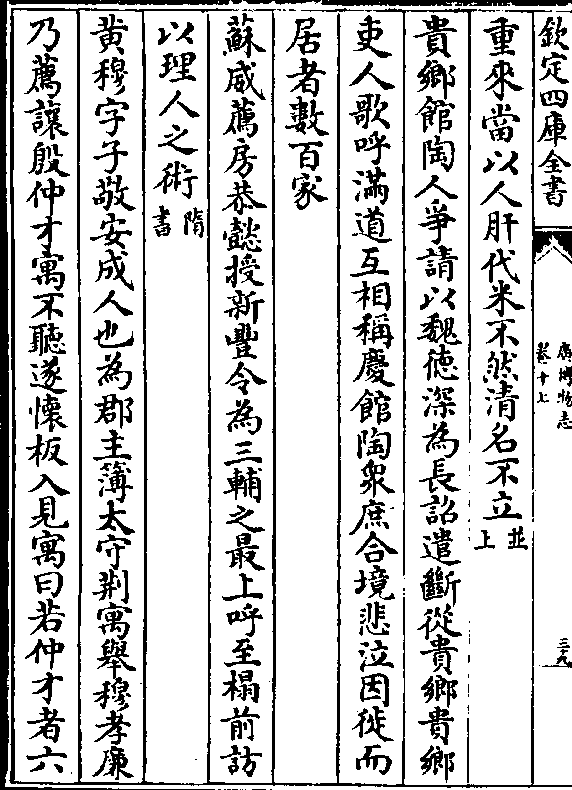 欽定四庫全書
廣博物志
卷十七
三九
重來當以人肝代米不然清名不立並上
貴鄉館陶人爭請以魏徳深為長詔遣斷從貴鄉貴鄉
吏人歌呼滿道互相稱慶館陶衆庶合境悲泣因徙而
居者數百家
蘇威薦房恭懿授新豐令為三輔之最上呼至榻前訪
以理人之術隋書
黄穆字子敬安成人也為郡主簿太守荆寓舉穆孝廉
乃薦讓殷仲才寓不聽遂懷板入見寓曰若仲才者六